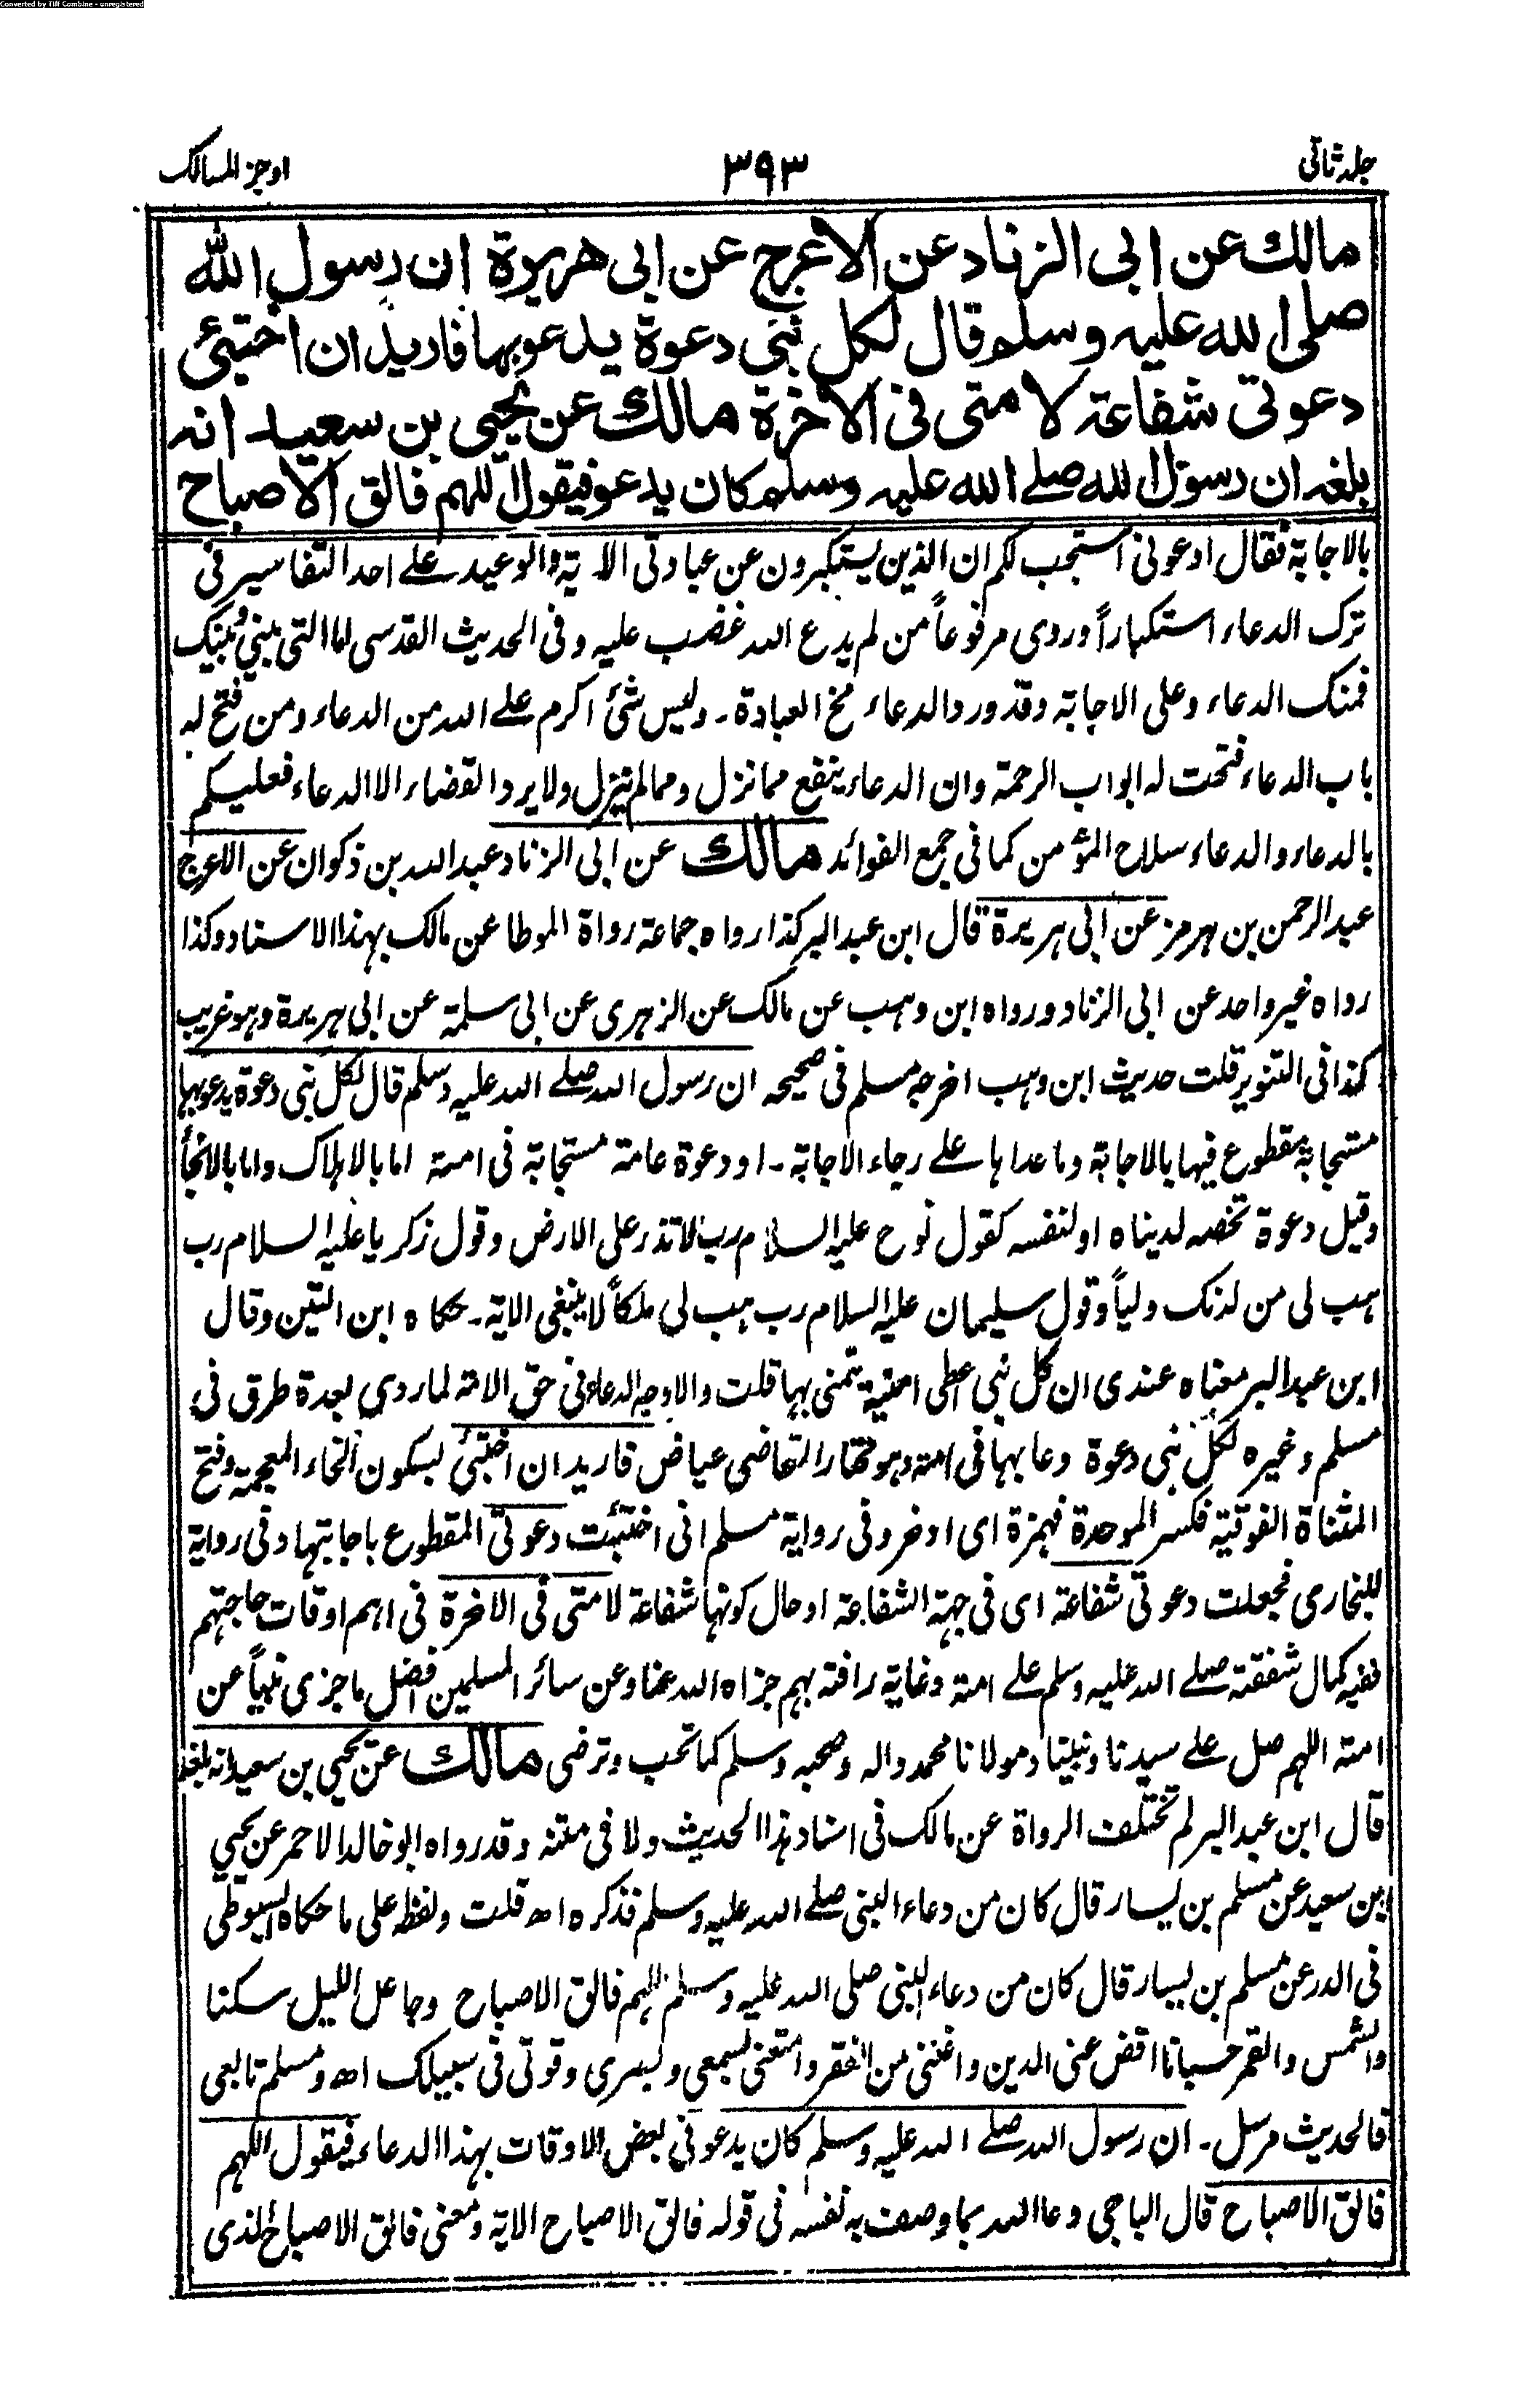 Converted by Tiff Combine - unregistered
جلد ثانی ۳۹۳ اوجز المسالک
مالك عن ابی الزناد عن الاعرج عن ابی هريرة ان رسول الله
صلی الله علیه وسلم قال لكل نبی دعوة يدعو بها فاريد ان اختبئ
دعوتی شفاعة لامتی فی الاخرة مالك عن يحيی بن سعيد انه
بلغه ان رسول الله صلے الله علیه وسلم كان يدعو فيقول اللهم فالق الاصباح
بالاجابة فقال ادعونی استجب لکم ان الذین یستکبرون عن عبادتی الایة والوعید علے احد التفاسیر فی
ترک الدعاء استکباراً وروی مرفوعاً من لم یدع الله غضب علیه وفی الحدیث القدسی اما التی بینی وبینک
فمنک الدعاء وعلی الاجابة وقد ورد الدعاء مخ العبادة۔ ولیس شئ اکرم علے الله من الدعاء ومن فتح له
باب الدعاء فتحت له ابواب الرحمة وان الدعاء ینفع مما نزل ومما لم ینزل ولا یرد القضاء الا الدعاء فعلیکم
بالدعاء والدعاء سلاح المؤمن کما فی جمع الفوائد مالك عن ابی الزناد عبد الله بن ذکوان عن الاعرج
عبد الرحمن بن ہرمز عن ابی ہریرة قال ابن عبد البر کذا رواه جماعة رواة الموطا عن مالک بهذا الاسناد وکذا
رواه غیر واحد عن ابی الزناد ورواه ابن وہب عن مالک عن الزہری عن ابی سلمة عن ابی ہریرة وہو غریب
کذا فی التنویر قلت حدیث ابن وہب اخرجه مسلم فی صحیحه ان رسول الله صلے الله علیه وسلم قال لکل نبی دعوة یدعو بها
مستجابة مقطوع فیها بالاجابة وما عداہا علے رجاء الاجابة۔ او دعوة عامة مستجابة فی امته اما بالاہلاک واما بالانجاء
وقیل دعوة تخصه لدیناه او لنفسه کقول نوح علیه السلام رب لا تذر علی الارض وقول زکریا علیه السلام رب
ہب لی من لدنک ولیاً وقول سلیمان علیه السلام رب ہب لی ملکاً لا ینبغی الایة۔ حکاه ابن التین وقال
ابن عبد البر معناه عندی ان کل نبی اعطی امنیة یتمنی بها قلت والاوجه الدعاء فی حق الامة لما روی بعدة طرق فی
مسلم وغیره لکل نبی دعوة دعا بها فی امته وہو مختار القاضی عیاض فارید ان اختبئ بسکون الخاء المعجمة وفتح
المثناة الفوقیة فکسر الموحدة فہمزة ای ادخر وفی روایة مسلم انی اختبئت دعوتی المقطوع باجابتها وفی روایة
للبخاری فجعلت دعوتی شفاعة ای فی جهة الشفاعة او حال کونها شفاعة لامتی فی الاخرة فی اہم اوقات حاجتهم
ففیه کمال شفقته صلے الله علیه وسلم علے امته وغایة رافته بهم جزاه الله عنا وعن سائر المسلمین افضل ما جزی نبیاً عن
امته اللهم صل علے سیدنا ونبینا ومولانا محمد واله وصحبه وسلم کما تحب وترضی مالك عن یحیی بن سعید انه بلغه
قال ابن عبد البر لم تختلف الرواة عن مالک فی اسناد ہذا الحدیث ولا فی متنه وقد رواه ابو خالد الاحمر عن یحیی
ابن سعید عن مسلم بن یسار قال کان من دعاء النبی صلے الله علیه وسلم فذکره اھ قلت ولفظه علی ما حکاه السیوطی
فی الدر عن مسلم بن یسار قال کان من دعاء النبی صلی الله علیه وسلم اللهم فالق الاصباح وجاعل اللیل سکنا
والشمس والقمر حسبانا اقض عنی الدین واغننی من الفقر وامتعنی بسمعی وبصری وقوتی فی سبیلک اھ ومسلم تابعی
فالحدیث مرسل۔ ان رسول الله صلے الله علیه وسلم کان یدعو فی بعض الاوقات بهذا الدعاء فیقول اللهم
فالق الاصباح قال الباجی دعا الله بما وصف به نفسه فی قوله فالق الاصباح الایة ومعنی فالق الاصباح الذی